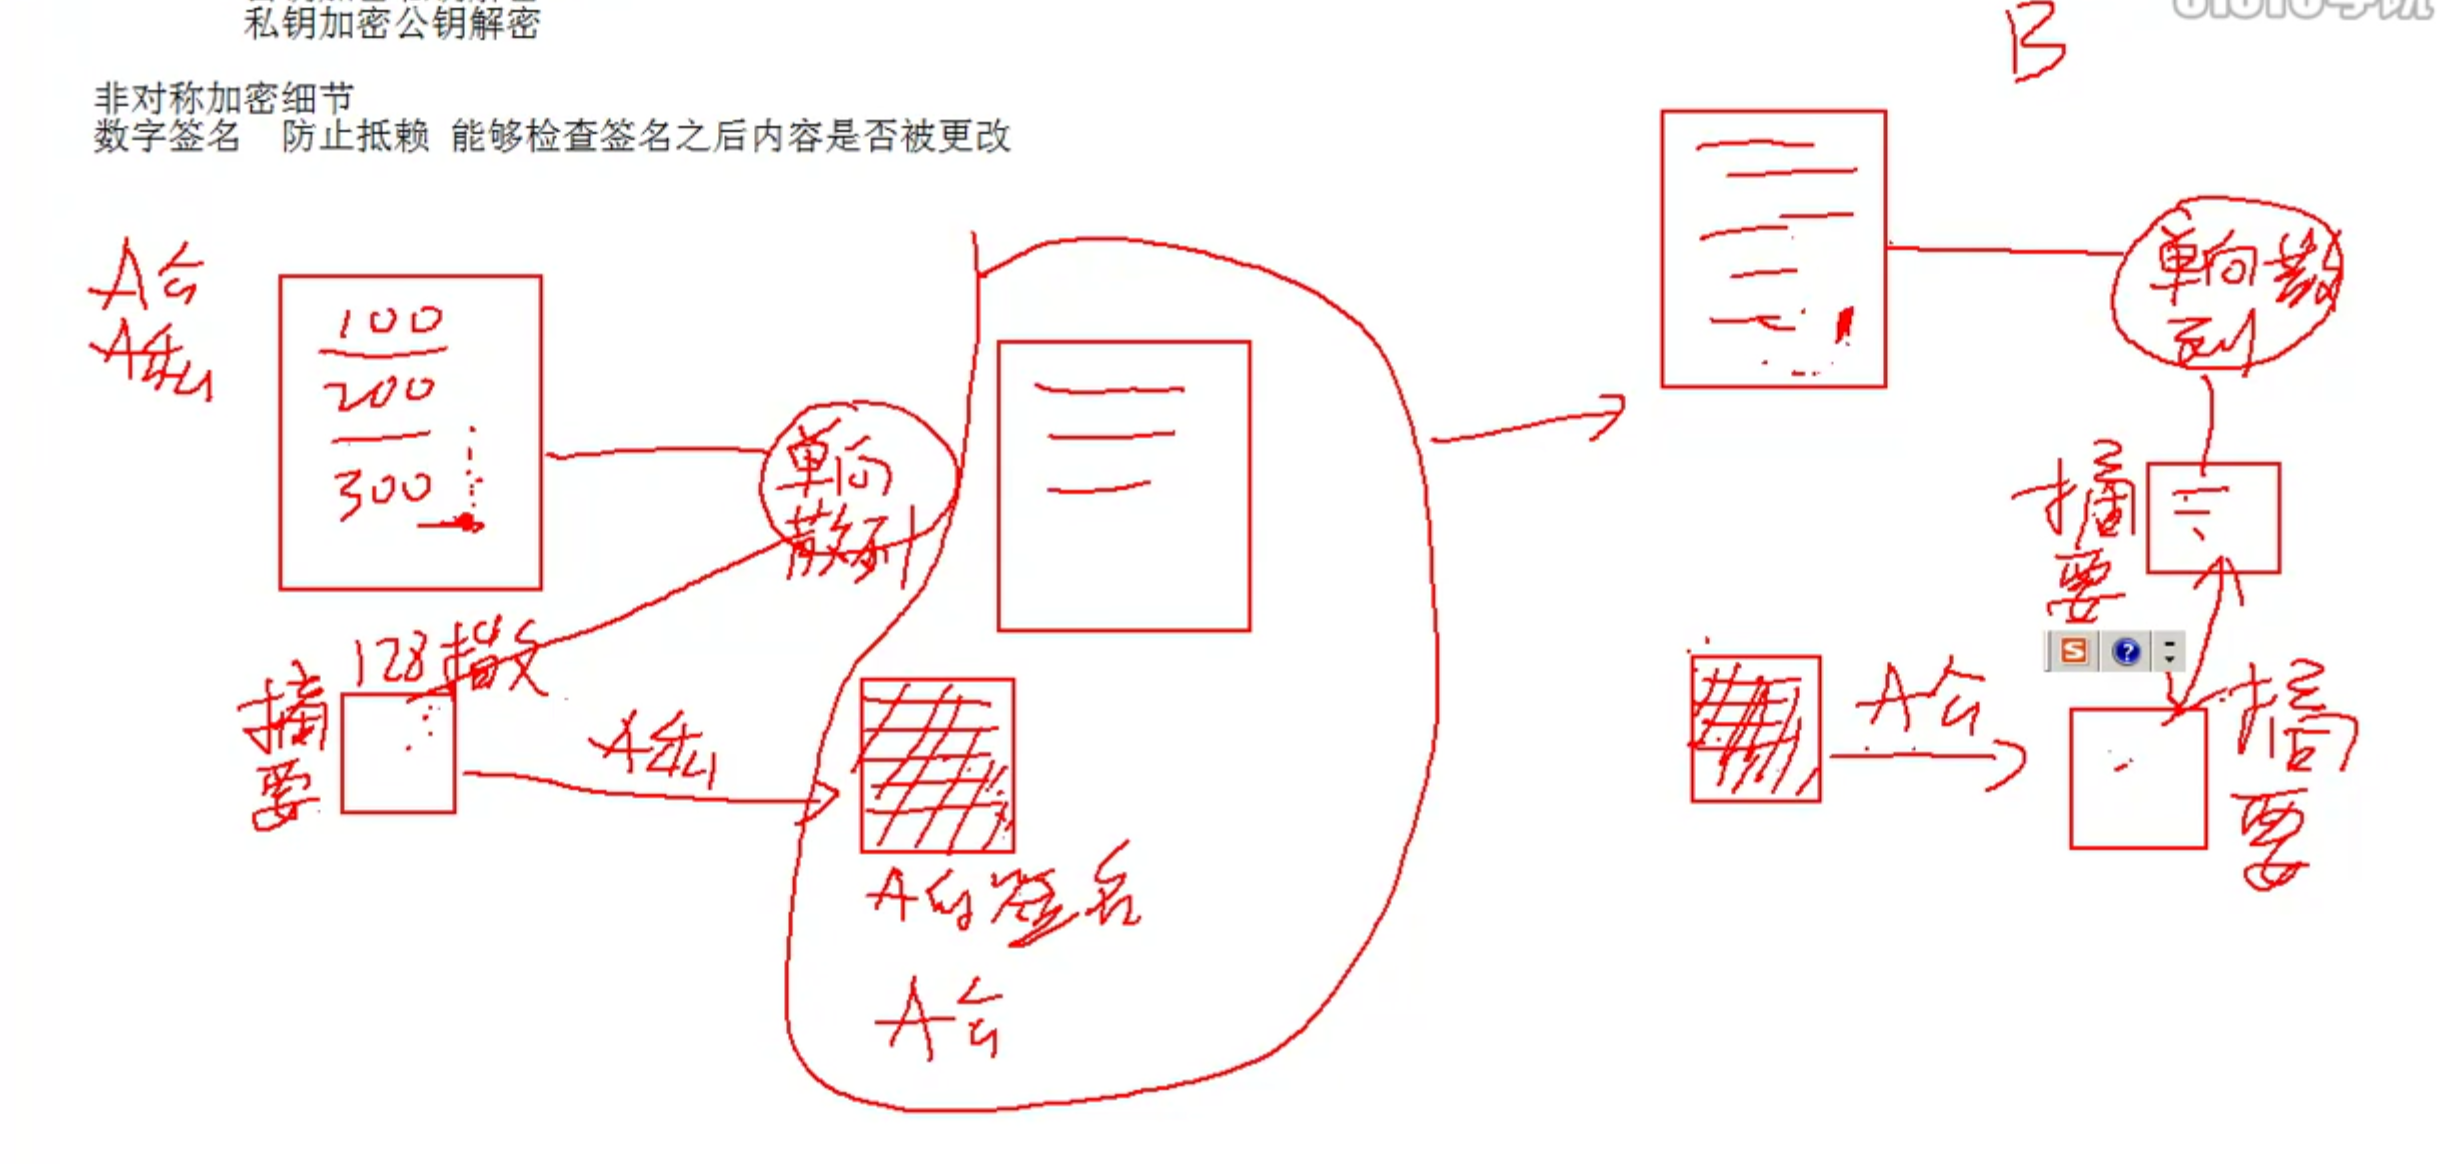 私钥加密公钥解密
B
非对称加密细节
数字签名 防止抵赖 能够检查签名之后内容是否被更改
A公
A私
100
200
300
单向
散列
单向散
列
128
摘
要
A私
A的签名
A公
摘
要
A公
摘
要